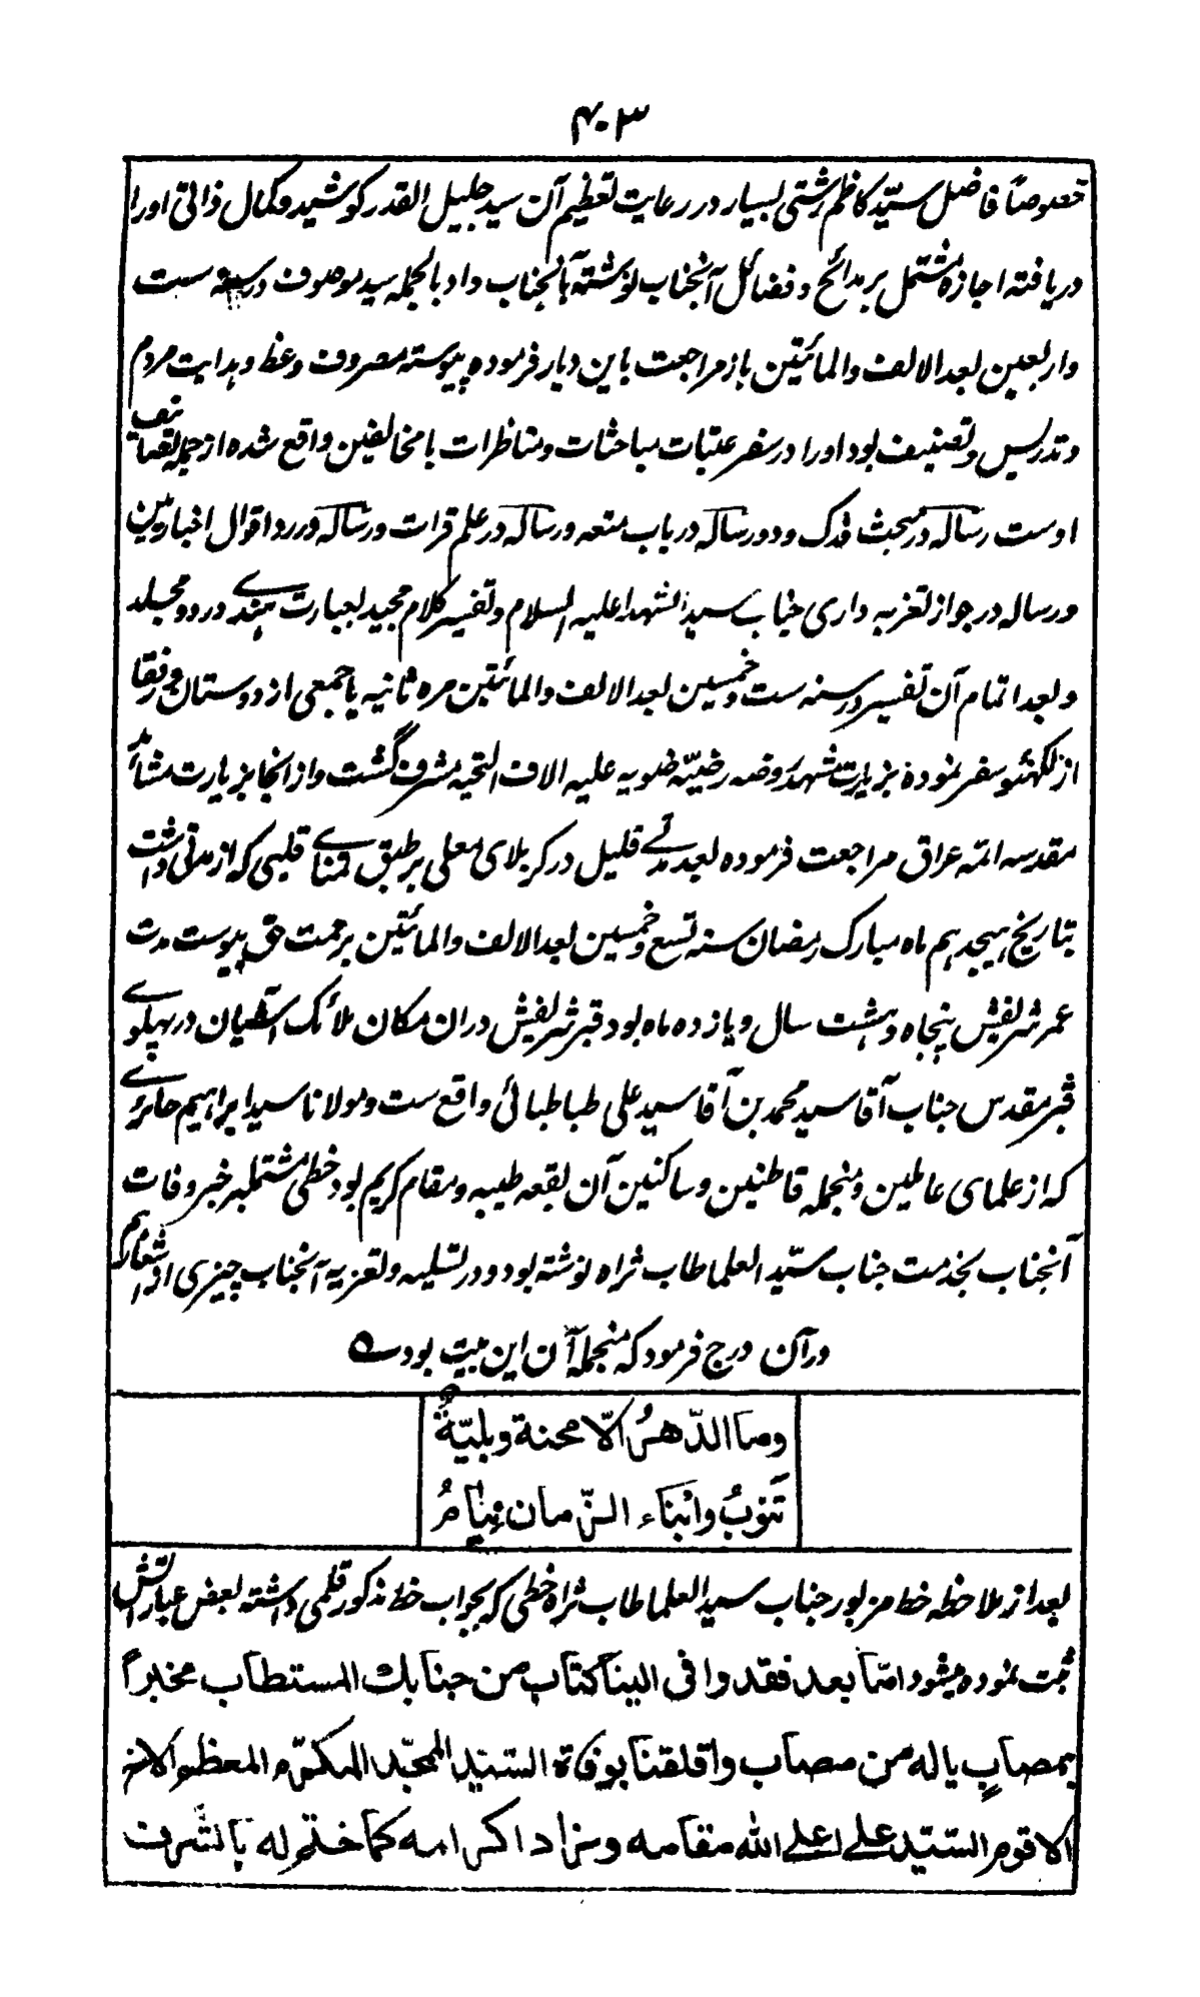 ۴۰۳
خصوصاً فاضل سیّد کاظم رشتی بسیار در رعایت تعظیم آن سید جلیل القدر کوشید و کمال ذاتی او را
دریافته اجازه مشتمل بر مدائح و فضائل آنجناب نوشته بآنجناب داد بالجمله سید موصوف در سنه ست
واربعین بعد الالف والمائتین باز مراجعت باین دیار فرموده پیوسته مصروف وعظ و هدایت مردم
و تدریس و تصنیف بود او را در سفر عتبات مباحثات و مناظرات با مخالفین واقع شده از جمله تصانیف
اوست رساله در مبحث فدک و دو رساله در باب متعه و رساله در علم قرات و رساله در رد اقوال اخباریین
و رساله در جواز تعزیه داری جناب سید الشهدا علیه السلام و تفسیر کلام مجید بعبارت هندی در دو مجلد
و بعد اتمام آن تفسیر در سنه ست و خمسین بعد الالف والمائتین مره ثانیه با جمعی از دوستان و رفقا
از لکهنئو سفر نموده بزیارت مشهد روضه رضیّه رضویه علیه الاف التحیه مشرف گشت و از انجا بزیارت مشاهد
مقدسه ائمه عراق مراجعت فرموده بعد مدتے قلیل در کربلای معلی بر طبق تمناے قلبی که از مدتی داشت
بتاریخ هیجدهم ماه مبارک رمضان سنه تسع و خمسین بعد الالف والمائتین برحمت حق پیوست مدت
عمر شریفش پنجاه و هشت سال و یازده ماه بود قبر شریفش دران مکان ملائک آشیان در پهلوے
قبر مقدس جناب آقا سید محمد بن آقا سید علی طباطبائی واقع ست و مولانا سید ابراهیم حائرے
که از علمای عاملین و منجمله قاطنین و ساکنین آن بقعه طیبه و مقام کریم بود خطی مشتمله بر خبر وفات
آنجناب بخدمت جناب سیّد العلما طاب ثراه نوشته بود و در تسلیه و تعزیه آنجناب چیزی از اشعار هم
در آن درج فرمود که منجمله آن این بیت بود ے
وما الدّهرُ الّا محنة وبلیّةٌ
تَنوبُ وابْناء الزّمان نِیَامُ
بعد از ملاحظه خط مزبور جناب سید العلما طاب ثراه خطی که بجواب خط مذکور قلمی داشته بعض عباراتش
ثبت نموده میشود امّا بعد فقد وافی الینا کتاب من جنابك المستطاب مخبراً
بمصابٍ یاله من مصاب واقلقنا بوفاة السّید الممجّد المکرّم المعظم الافخم
الاقوم السّیّد علے اعلے الله مقامه وزاد اکرامه کما ختم له بالشّرف